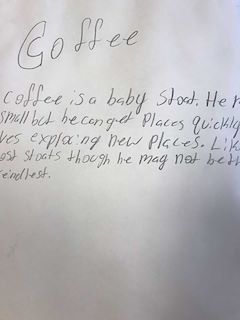 Coffee
Coffee is a baby stoat. He m
small but he can get Places quickly
ves exploring new Places. Lik
ost stoats though he may not be th
eindlest.